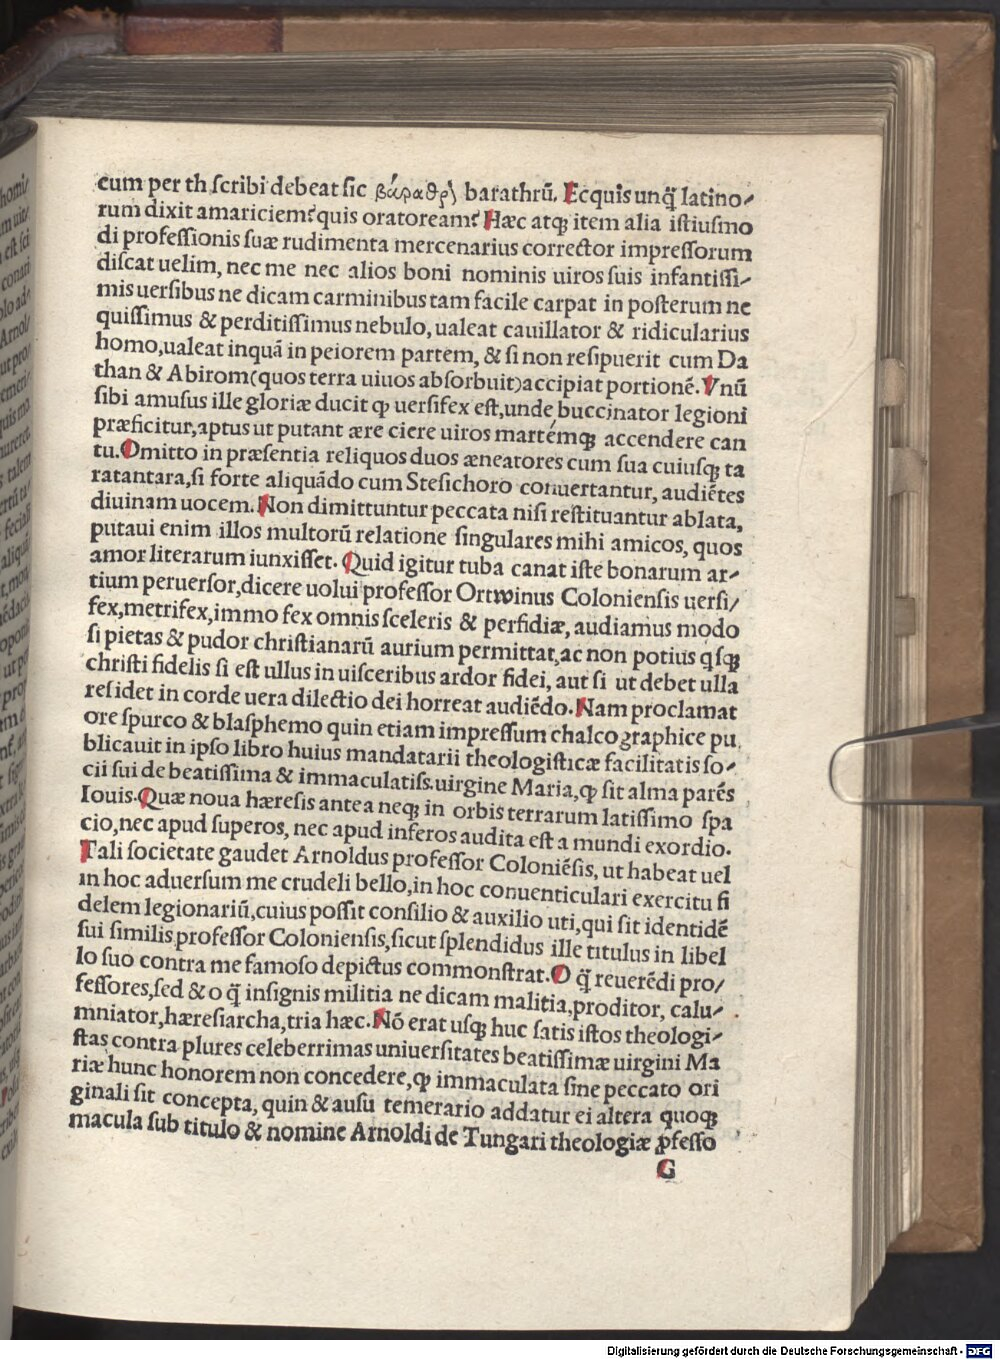 cum per th ſcribi debeat ſic βάραθρ barathrū. Ecquis unq̃ latino⸗
rum dixit amariciem? quis oratoream? Hæc atqꝫ item alia iſtiuſmo
di profeſſionis ſuæ rudimenta mercenarius corrector impreſſorum
diſcat uelim, nec me nec alios boni nominis uiros ſuis infantiſſi⸗
mis uerſibus ne dicam carminibus tam facile carpat in poſterum ne
quiſſimus & perditiſſimus nebulo, ualeat cauillator & ridicularius
homo,ualeat inquā in peiorem partem, & ſi non reſipuerit cum Da
than & Abirom(quos terra uiuos abſorbuit)accipiat portionē. Vnū
ſibi amuſus ille gloriæ ducit ꝙ uerſifex eſt,unde buccinator legioni
præficitur,aptus ut putant ære ciere uiros martémqꝫ accendere can
tu. Omitto in præſentia reliquos duos æneatores cum ſua cuiuſqꝫ ta
ratantara,ſi forte aliquādo cum Steſichoro conuertantur, audiētes
diuinam uocem. Non dimittuntur peccata niſi reſtituantur ablata,
putaui enim illos multorū relatione ſingulares mihi amicos, quos
amor literarum iunxiſſet. Quid igitur tuba canat iſte bonarum ar⸗
tium peruerſor,dicere uolui profeſſor Ortwinus Colonienſis uerſi/
fex,metrifex,immo fex omnis ſceleris & perfidiæ, audiamus modo
ſi pietas & pudor chriſtianarū aurium permittat,ac non potius qſqꝫ
chriſti fidelis ſi eſt ullus in uiſceribus ardor fidei, aut ſi ut debet ulla
reſidet in corde uera dilectio dei horreat audiēdo. Nam proclamat
ore ſpurco & blaſphemo quin etiam impreſſum chalcographice pu
blicauit in ipſo libro huius mandatarii theologiſticæ facilitatis ſo⸗
cii ſui de beatiſſima & immaculatiſs. uirgine Maria,ꝙ ſit alma parēs
Iouis. Quæ noua hæreſis antea neqꝫ in orbis terrarum latiſſimo ſpa
cio,nec apud ſuperos, nec apud inferos audita eſt a mundi exordio.
Tali ſocietate gaudet Arnoldus profeſſor Coloniēſis, ut habeat uel
in hoc aduerſum me crudeli bello,in hoc conuenticulari exercitu fi
delem legionariū,cuius poſſit conſilio & auxilio uti,qui ſit identidē
ſui ſimilis profeſſor Colonienſis,ſicut ſplendidus ille titulus in libel
lo ſuo contra me famoſo depictus commonſtrat. O q̃ reuerēdi pro/
feſſores,ſed & o q̃ inſignis militia ne dicam malitia,proditor, calu⸗
mniator,hæreſiarcha,tria hæc. Nō erat uſqꝫ huc ſatis iſtos theologi⸗
ſtas contra plures celeberrimas uniuerſitates beatiſſimæ uirgini Ma
riæ hunc honorem non concedere,ꝙ immaculata ſine peccato ori
ginali ſit concepta, quin & auſu temerario addatur ei altera quoqꝫ
macula ſub titulo & nomine Arnoldi de Tungari theologiæ ꝓfeſſo
G
Digitalisierung gefördert durch die Deutsche Forschungsgemeinschaft - DFG